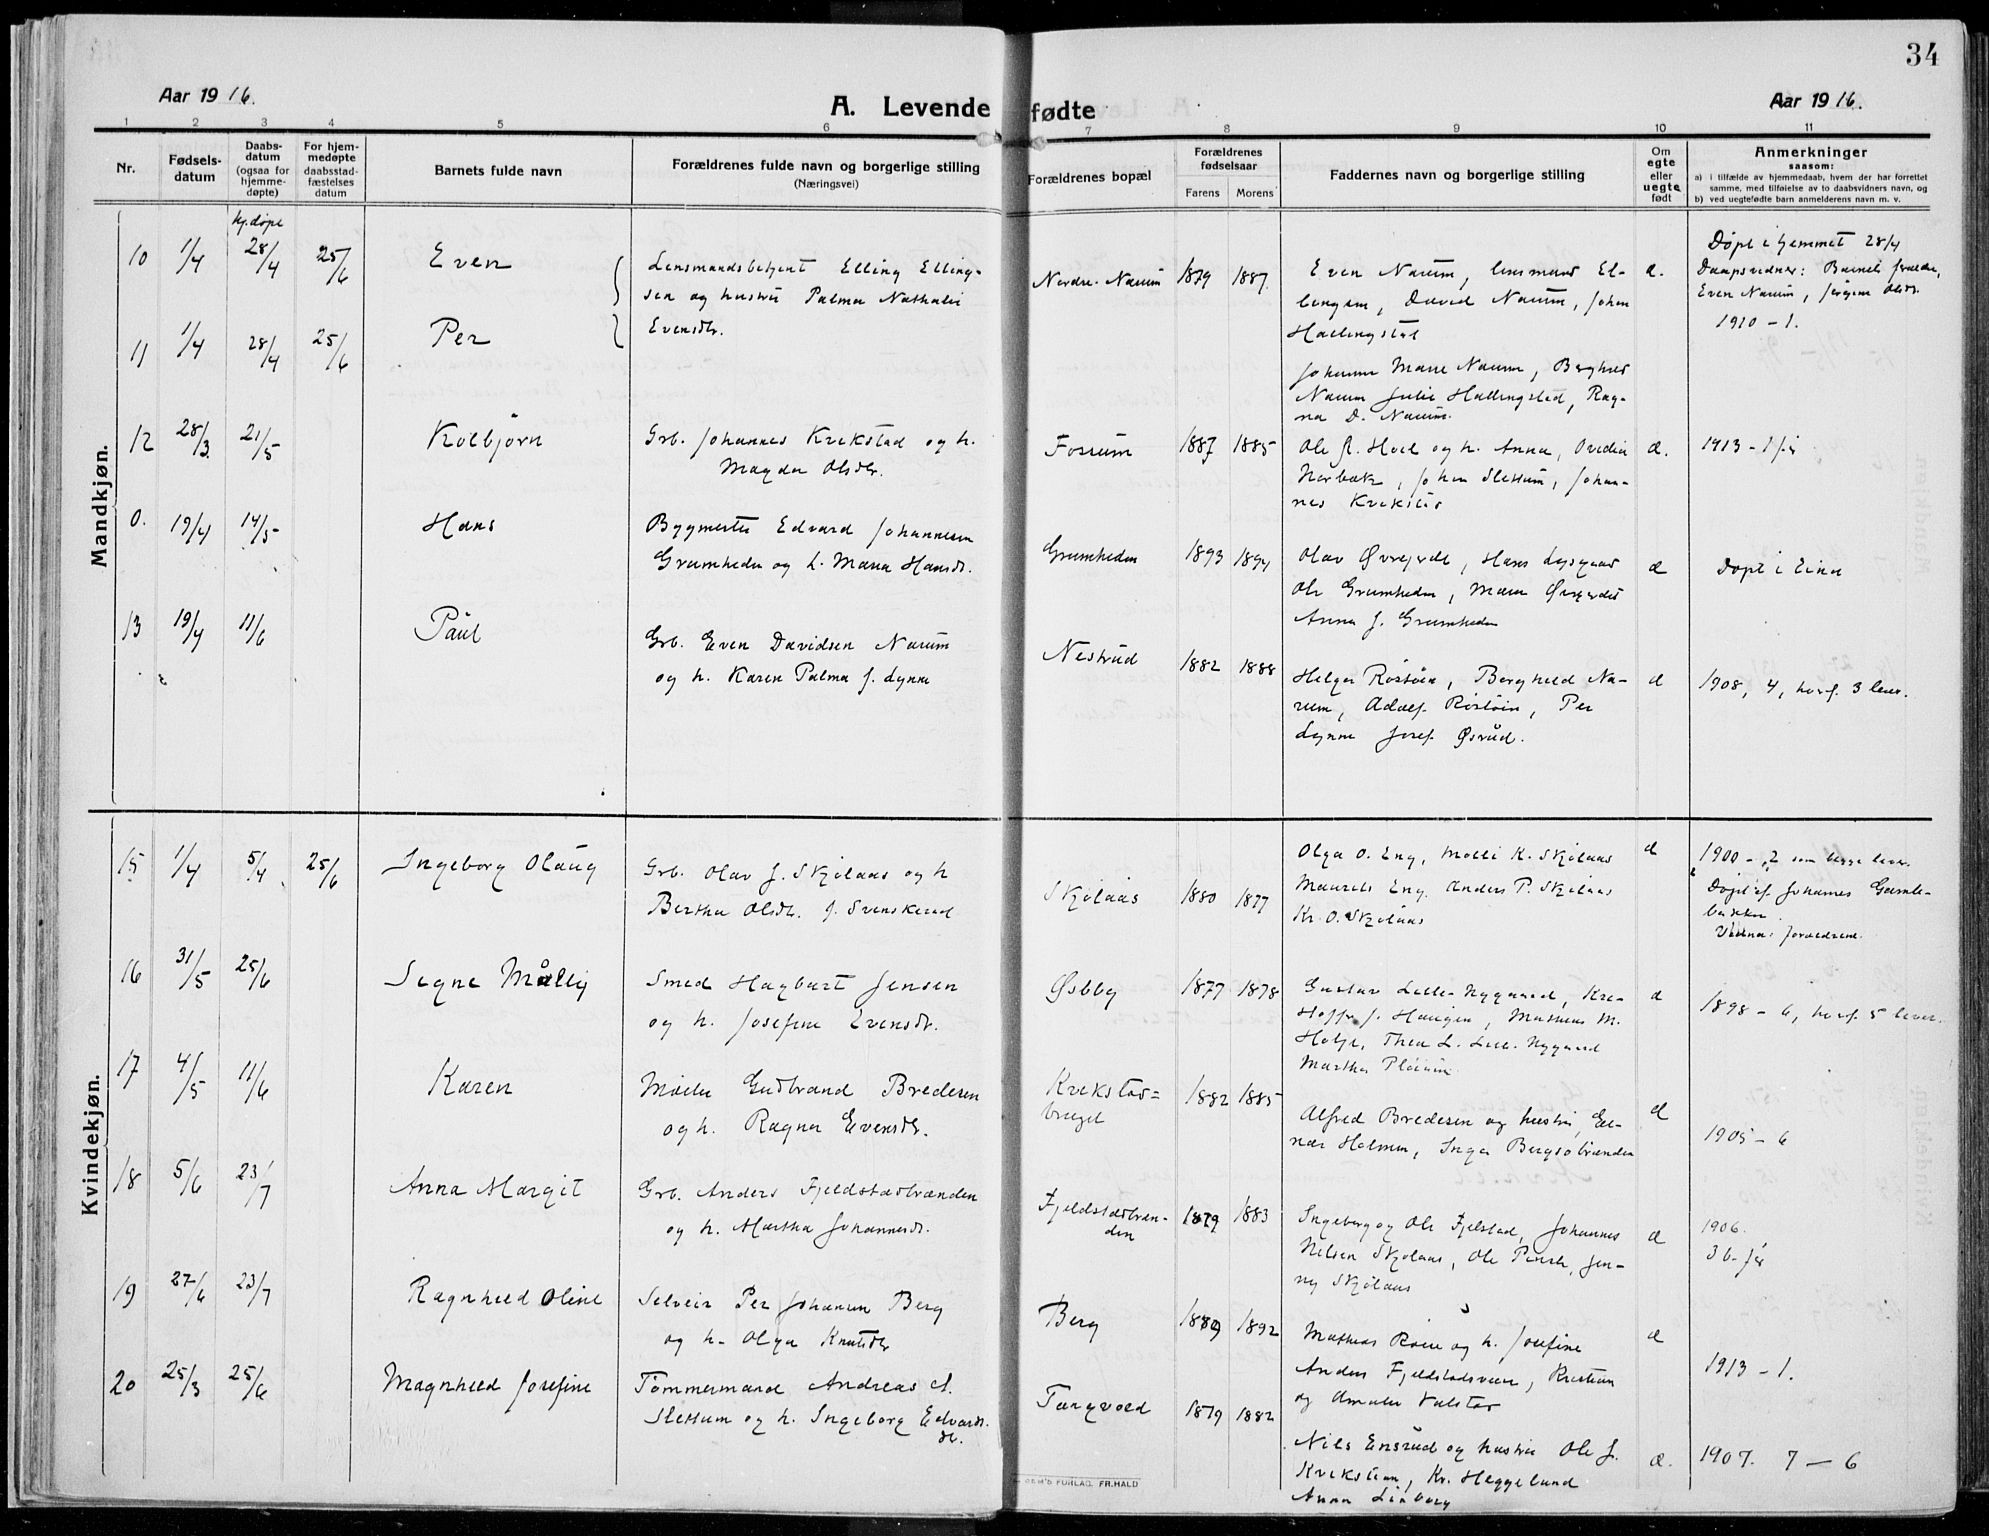 34
Aar 1916.
A. Levende fødte
Aar 1916.
1 2 3 4 5 6 7 8 9 10 11
Nr.
Fødsels-
datum
Daabs-
datum
(ogsaa for
hjemme-
døpte)
For hjem-
medøpte
daabsstad-
fæstelses
datum
Barnets fulde navn
Forældrenes fulde navn og borgerlige stilling
(Næringsvei)
Forældrenes bopæl
Forældrenes
fødselsaar
Farens Morens
Faddernes navn og borgerlige stilling
Om
egte
eller
uegte
født
Anmerkninger
saasom:
a) i tilfælde av hjemmedaab, hvem der har forrettet
samme, med tilføielse av to daabsvidners navn, og
b) ved uegtefødte barn anmelderens navn m. v.
Mandkjøn.
hj. døpt
10 1/4 28/4 25/6 Even
Lensmandsbetjent Elling Elling-
sen og hustru Palma Nathalie
Evensdtr.
Nordre Narum 1879 1887
Even Narum, lensmand El-
lingsen, David Narum, Johan
Hallingstad
Johanne Marie Narum, Borghild
Narum Julie Hallingstad, Rag-
na D. Narum.
e.
Døpt i hjemmet 28/4
Daapsvidner: Barnets forældre,
Even Narum, Jørgen Olsdr.
1910 - 1.
11 1/4 28/4 25/6 Per
12 28/3 21/5 Kolbjørn
Grb. Johannes Krekstad og h.
Magda Olsdtr.
Fossum 1887 1885
Ole A. Hoel og h. Anna, Ovedia
Norbæk, Johan Slettum, Johan-
nes Krekstad
e. 1913 - 1
0. 19/4 14/5 Hans
Bygmester Edvard Johannesen
Grumheden og h. Maria Hansdr.
Grumheden 1893 1894
Olav Øvergerde, Hans Lysgaard
Ole Grumheden, Maria
Anna J. Grumheden
e Døpt i Eina
13 19/4 11/6 Paul
Grb. Even Davidsen Narum
og h. Karen Palma f. Lynne
Nestrud 1882 1888
Helga Røstøen, Borghild Na-
rum, Adolf Røstøen, Per
Lynne Josef Øsrud.
e 1908, 4, hvoraf 3 lever.
Kvindekjøn.
15 1/4 5/4 25/6 Ingeborg Olaug
Grb. Olav J. Skjølaas og h
Bertha Olsdtr. f. Svenskerud
Skjølaas 1880 1877
Olga O. Eng, Molli K. Skjølaas
Maurits Eng, Anders P. Skjølaas
Kr. O. Skjølaas
e
1900 - 2 som begge lever.
Døpt af Johannes Gamle-
bakken.
Vidner: forældrene.
16 31/5 25/6 Signe Mølly
Smed Hagbart Jensen
og h. Josefine Evensdr.
Øsbby 1877 1878
Gustav Lille-Nygaard, Kre-
Hoffs J. Haugen, Mathias M.
Holje, Thea L. Lille-Nygaard
Martha
e 1898 - 6, hvoraf 5 lever.
17 4/5 11/6 Karen
Møller Gudbrand Bredesen
og h. Ragna Evensdr.
Krekstad=
bruget 1882 1885
Alfred Bredesen og hustru, Ei-
nar Holmen, Inga Bergsøbrænden
e 1905 - 6
18 5/6 23/7 Anna Margit
Grb. Anders Fjeldstadbrænden
og h. Martha Johannesdr.
Fjeldstadbræn-
den 1879 1883
Ingeborg og Ole Fjelstad, Johannes
Nilsen Skjølaas, Ole , Jen-
ny Skjølaas
e
1906.
3 b. før
19 27/6 23/7 Ragnhild Oline
Selveir Per Johansen Berg
og h. Olga Knutsdtr
Berg 1889 1892
Mathias Røise og h. Josefine
Anders Fjeldstadsveen, Kristian
og Amalie Valstad
e 1913 - 1.
20 25/3 25/6 Magnhild Josefine
Tømmermand Andreas A.
Slettum og h. Ingeborg Edvards-
dr.
Tangvold 1879 1882
Nils Ensrud og hustru Ole J.
Krekstuen, Kr. Heggelund
Anna Linberg
e. 1907. 7 — 6
FORLAG, FR. HALD